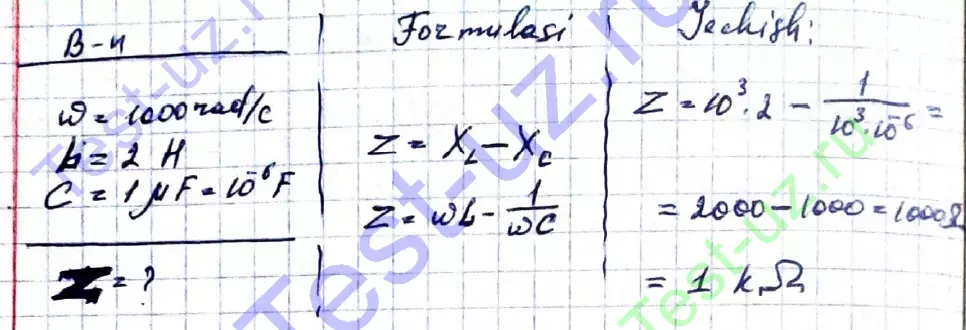 B-n
ω = 1000 rad/c
L = 2 H
C = 1 μF = 10⁻⁶ F
Z = ?
Formulasi
Z = X_L - X_C
Z = ωL - 1/ωC
Yechish:
Z = 10³ · 2 - 1/10³·10⁻⁶ =
= 2000 - 1000 = 1000Ω
= 1 kΩ
Test-uz.ru
Test-uz.ru
Test-uz.ru